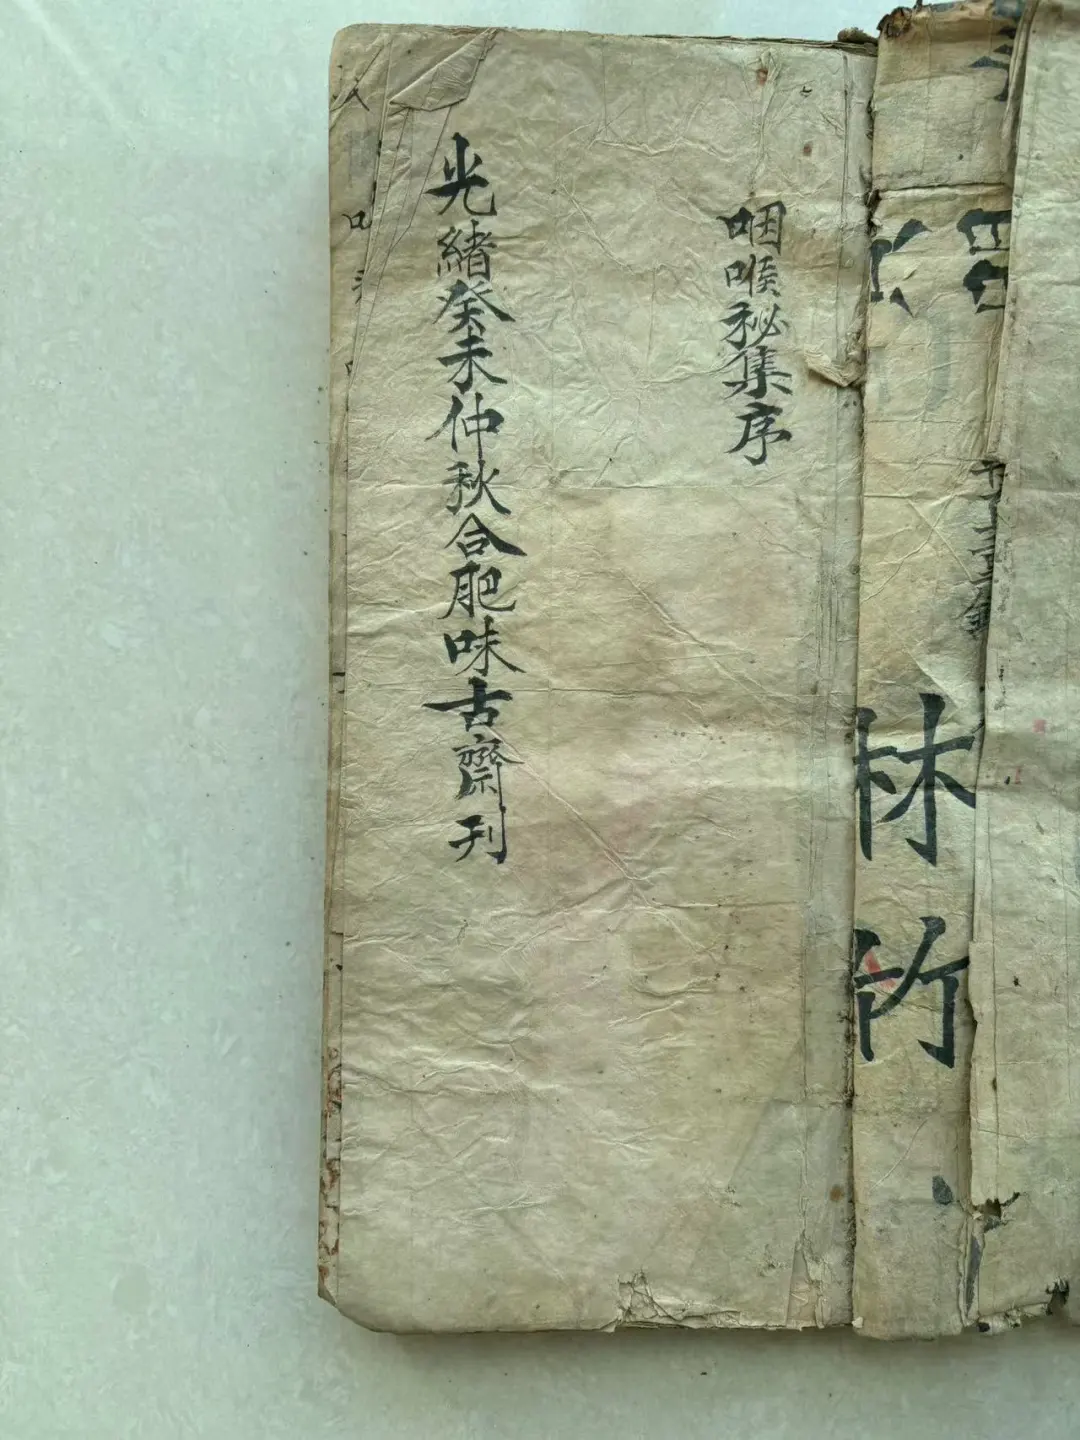 林竹
咽喉秘集序
光緒癸未仲秋合肥味古齋刊